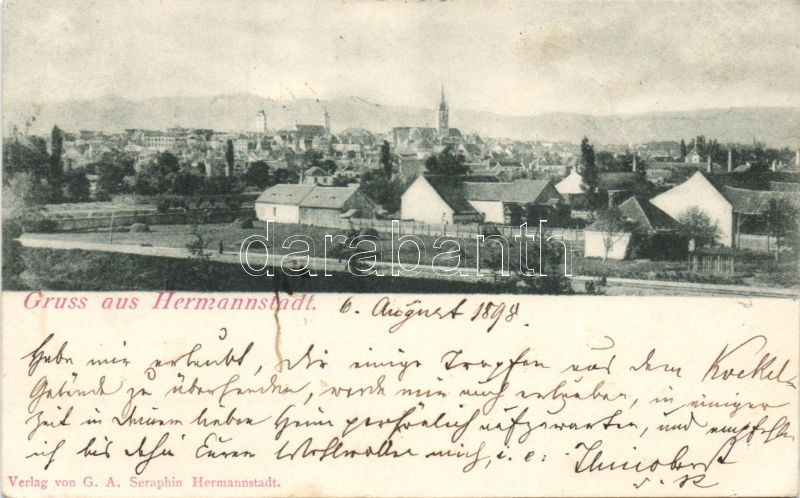 darabanth
Gruss aus Hermannstadt.
6. August 1898.
Habe mir erlaubt, Dir einige Tropfen aus dem Kockel-
Gelände zu übersenden, werde mir auch erlauben, in einiger
Zeit in Deinem lieben Heim persönlich aufzuwarten, und empfehle
ich bis dahin Eurem Wohlwollen mich, i. e.
Verlag von G. A. Seraphin Hermannstadt.